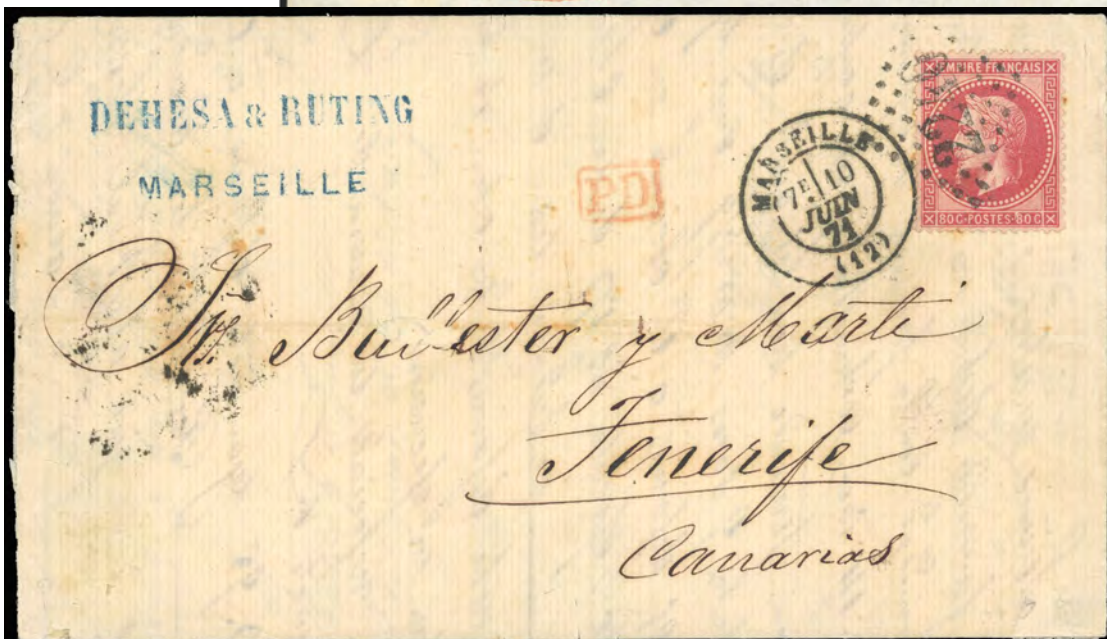 DEHESA & RUTING
MARSEILLE
PD
MARSEILLE
7E 10
JUIN
71
(12)
EMPIRE FRANÇAIS
80C-POSTES-80C
Srs. Ballester y Marti
Tenerife
Canarias